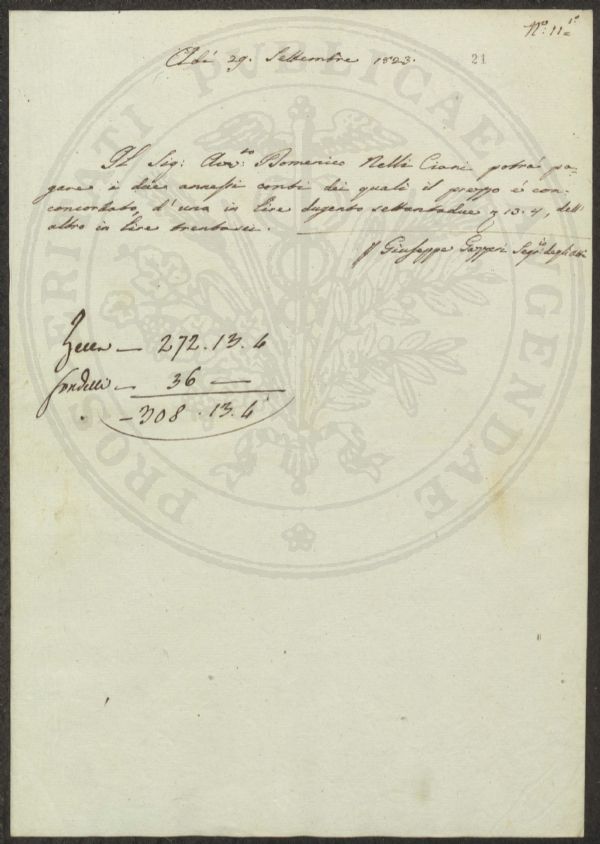 N.º 11 = 1º
21
Adì 29. Settembre 1823.
Il Sig: Avv:to Domenico Nelli Ciani potrà pa=
gare i due annessi conti dei quali il prezzo è con=
concordato, d'uno in Lire dugento settantadue 13. 4, dell'
altro in Lire trentasei.
Giuseppe Gazzeri Seg:º degli Atti
Zecca — 272. 13. 4
Fondelli — 36 —
— 308. 13. 4
PROSPERITATI PUBLICAE AUGENDAE